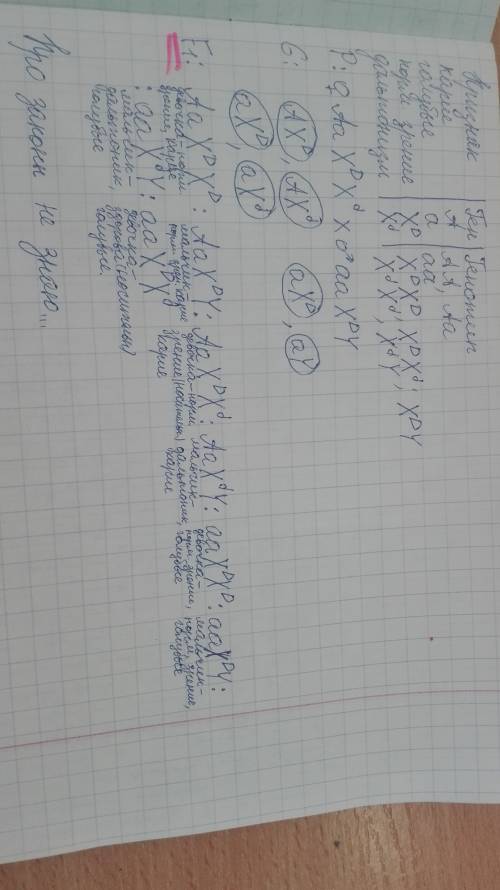 Признак | Ген | Генотип
карие | A | AA, Aa
голубые | a | aa
норм. зрение | Xᴰ | XᴰXᴰ, XᴰXᵈ, XᴰY
дальтонизм | Xᵈ | XᵈXᵈ, XᵈY
P: ♀ Aa XᴰXᵈ x ♂ aa XᴰY
G: AXᴰ, AXᵈ aXᴰ, aY
aXᴰ, aXᵈ
F1: Aa XᴰXᴰ : Aa XᴰY : Aa XᴰXᵈ : Aa XᵈY : aa XᴰXᴰ : aa XᴰY :
девочка-норм. зрение, карие
мальчик-норм. зрен., карие
девочка-норм. зрение (носитель) карие
мальчик-дальтоник, карие
девочка-норм. зрение, голубые
мальчик-норм. зрение, голубые
: aa XᵈY : aa
мальчик-дальтоник, голубые
девочка-здорова (носитель) голубые
Про законы не знаю...